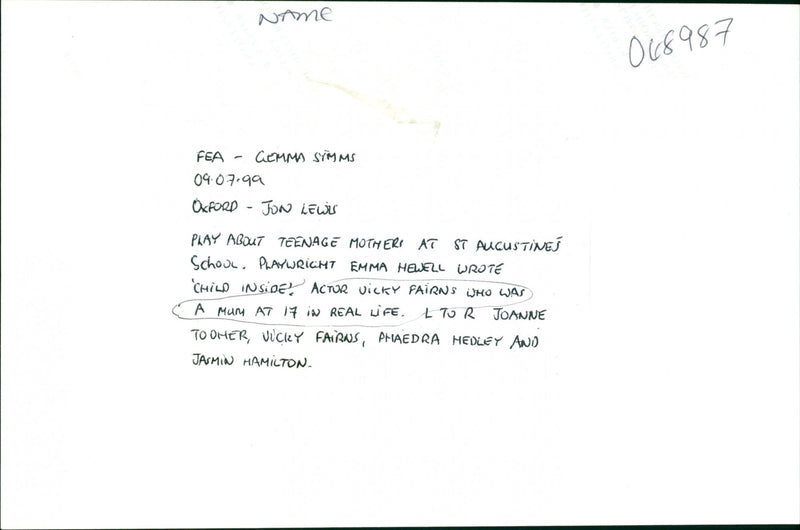 NAME
068987
FEA - GEMMA SIMMS
09.07.99
OXFORD - JON LEWIS
PLAY ABOUT TEENAGE MOTHERS AT ST AUGUSTINE'S
SCHOOL. PLAYWRIGHT EMMA HEWELL WROTE
'CHILD INSIDE'. ACTOR VICKY FAIRNS WHO WAS
A MUM AT 17 IN REAL LIFE. L TO R JOANNE
TOOHER, VICKY FAIRNS, PHAEDRA HEDLEY AND
JASMIN HAMILTON.